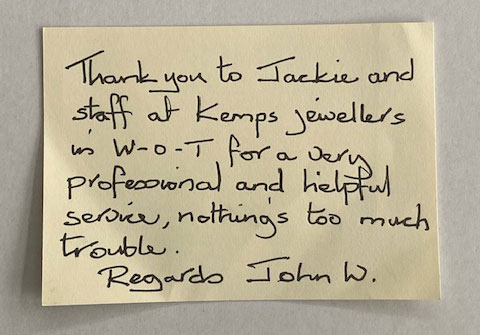 Thank you to Jackie and
staff at Kemps jewellers
in W-o-T for a very
professional and helpful
service, nothing's too much
trouble.
Regards John W.